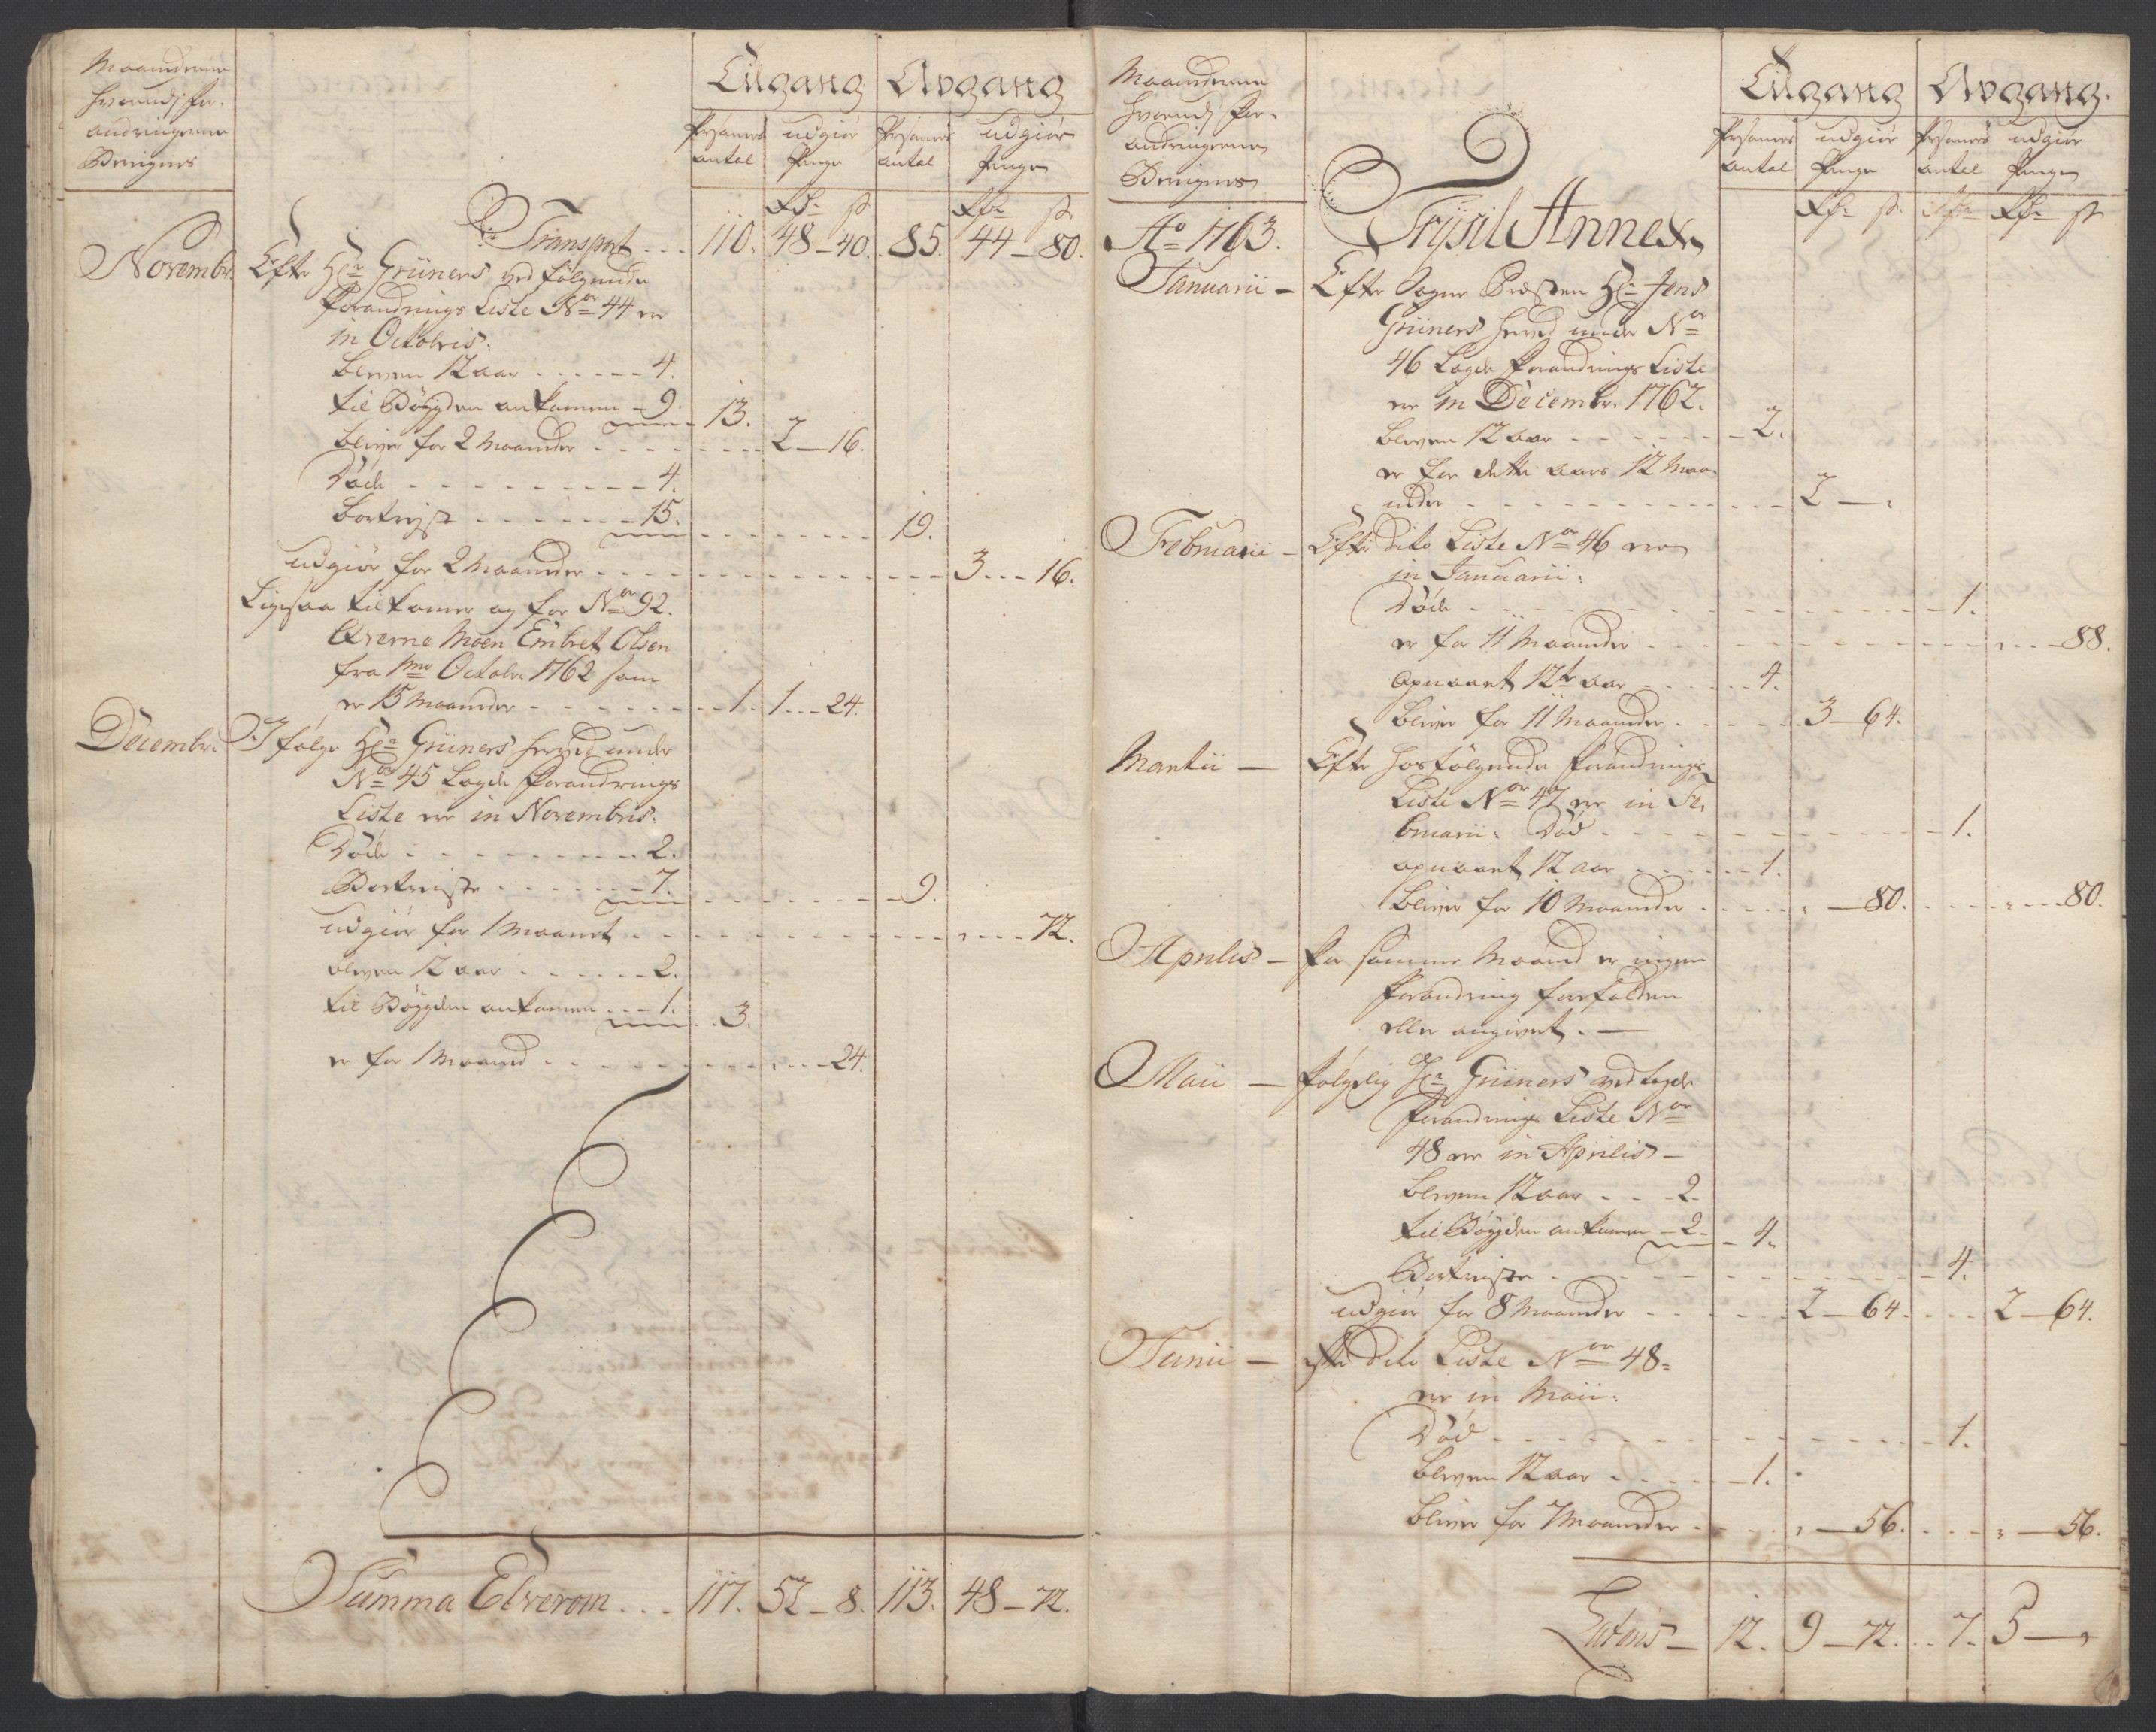 Maanederne
hvorudj for-
andringerne
Berignes
Tilgang Avgang
Persaners antal udgiør Penge Persaners antal udgiør Penge
Rd:r ß Rd:r ß
Transport 110. 48-40. 85. 44-80.
Novembr. Efter Hr: Grüners ved følgende
forandrings Liste Nor 44 er
in Octobris:
bleven 12 aar 4.
til Bøygden ankommen 9. 13.
bliver for 2 Maaneder 2-16.
Døde 4.
bortreyst 15. 19.
udgiør for 2 Maaneder 3 16.
Ligesaa tilkomer og for Nor 92.
Elverne Moen Embret Olsen
fra 1mo Octobr. 1762 som
er 15 Maaneder 1. 1-24.
Decembr. I følge Hr: Grüners herved under
Nor 45 Lagde forandrings
Liste er in Novembris:
Døde 2.
Bortreyste 7. 9.
udgiør for 1 Maanet 72.
bleven 12 aar 2.
til Bøygden ankommen 1. 3.
er for 1 Maaned 24.
Summa Elverom 117. 52-8. 113. 48-72.
Maanederne
hvorudj for-
andringerne
Berignes
Tilgang Avgang.
Persaners antal udgiør Penge Persaners antal udgiør Penge
Rd:r ß. Rd:r ß
Ao 1763. Trÿsil Annex
Januarii - Efter Sogne Præsten Hr: Jens
Grüners herved under Nor
46 Lagde forandrings Liste
er in Decembr. 1762.
bleven 12 aar 2.
er for dette aars 12 Maa-
neder 2 -
Februarii - Efter dito Liste Nor 46 er
in Januarii:
Døde 1.
er for 11 Maaneder 88.
opnaaet 12te aar 4.
bliver for 11 Maaneder 3-64.
Martii - Efter hosfølgende forandrings
Liste Nor 47 er in Fe-
bruarii: Død 1.
opnaaet 12 aar 1.
bliver for 10 Maaneder 80. 80.
Aprilis - for samme Maaned er ingen
forandring forfalden
eller angivet. -
Maii - følgelig Hr: Grüners vedlagde
forandrings Liste Nor
48 er in Aprilis -
bleven 12 aar 2.
til Bøygden ankommen 2. 4.
Bortreiste 4.
udgiør for 8 Maaneder 2-64. 2-64.
Junii - efter dito Liste Nor 48-
er in Maii:
Død 1.
bleven 12 aar 1.
bliver for 7 Maaneder 56. 56.
Lateris - 12. 9-72. 7. 5 -